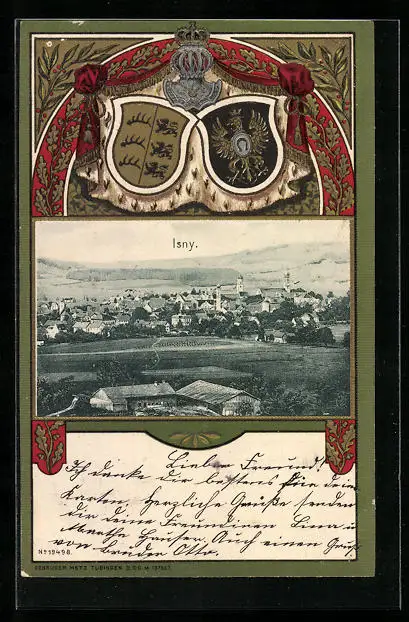 Isny.
Lieber Freund!
Ich danke dir bestens für deine
Karten. Herzliche Grüße senden
dir deine Freundinen Lina u
Hansen. Auch einen Gruß
von Bruder Otto.
No 19498.
GEBRÜDER METZ TÜBINGEN D.R.G.M.